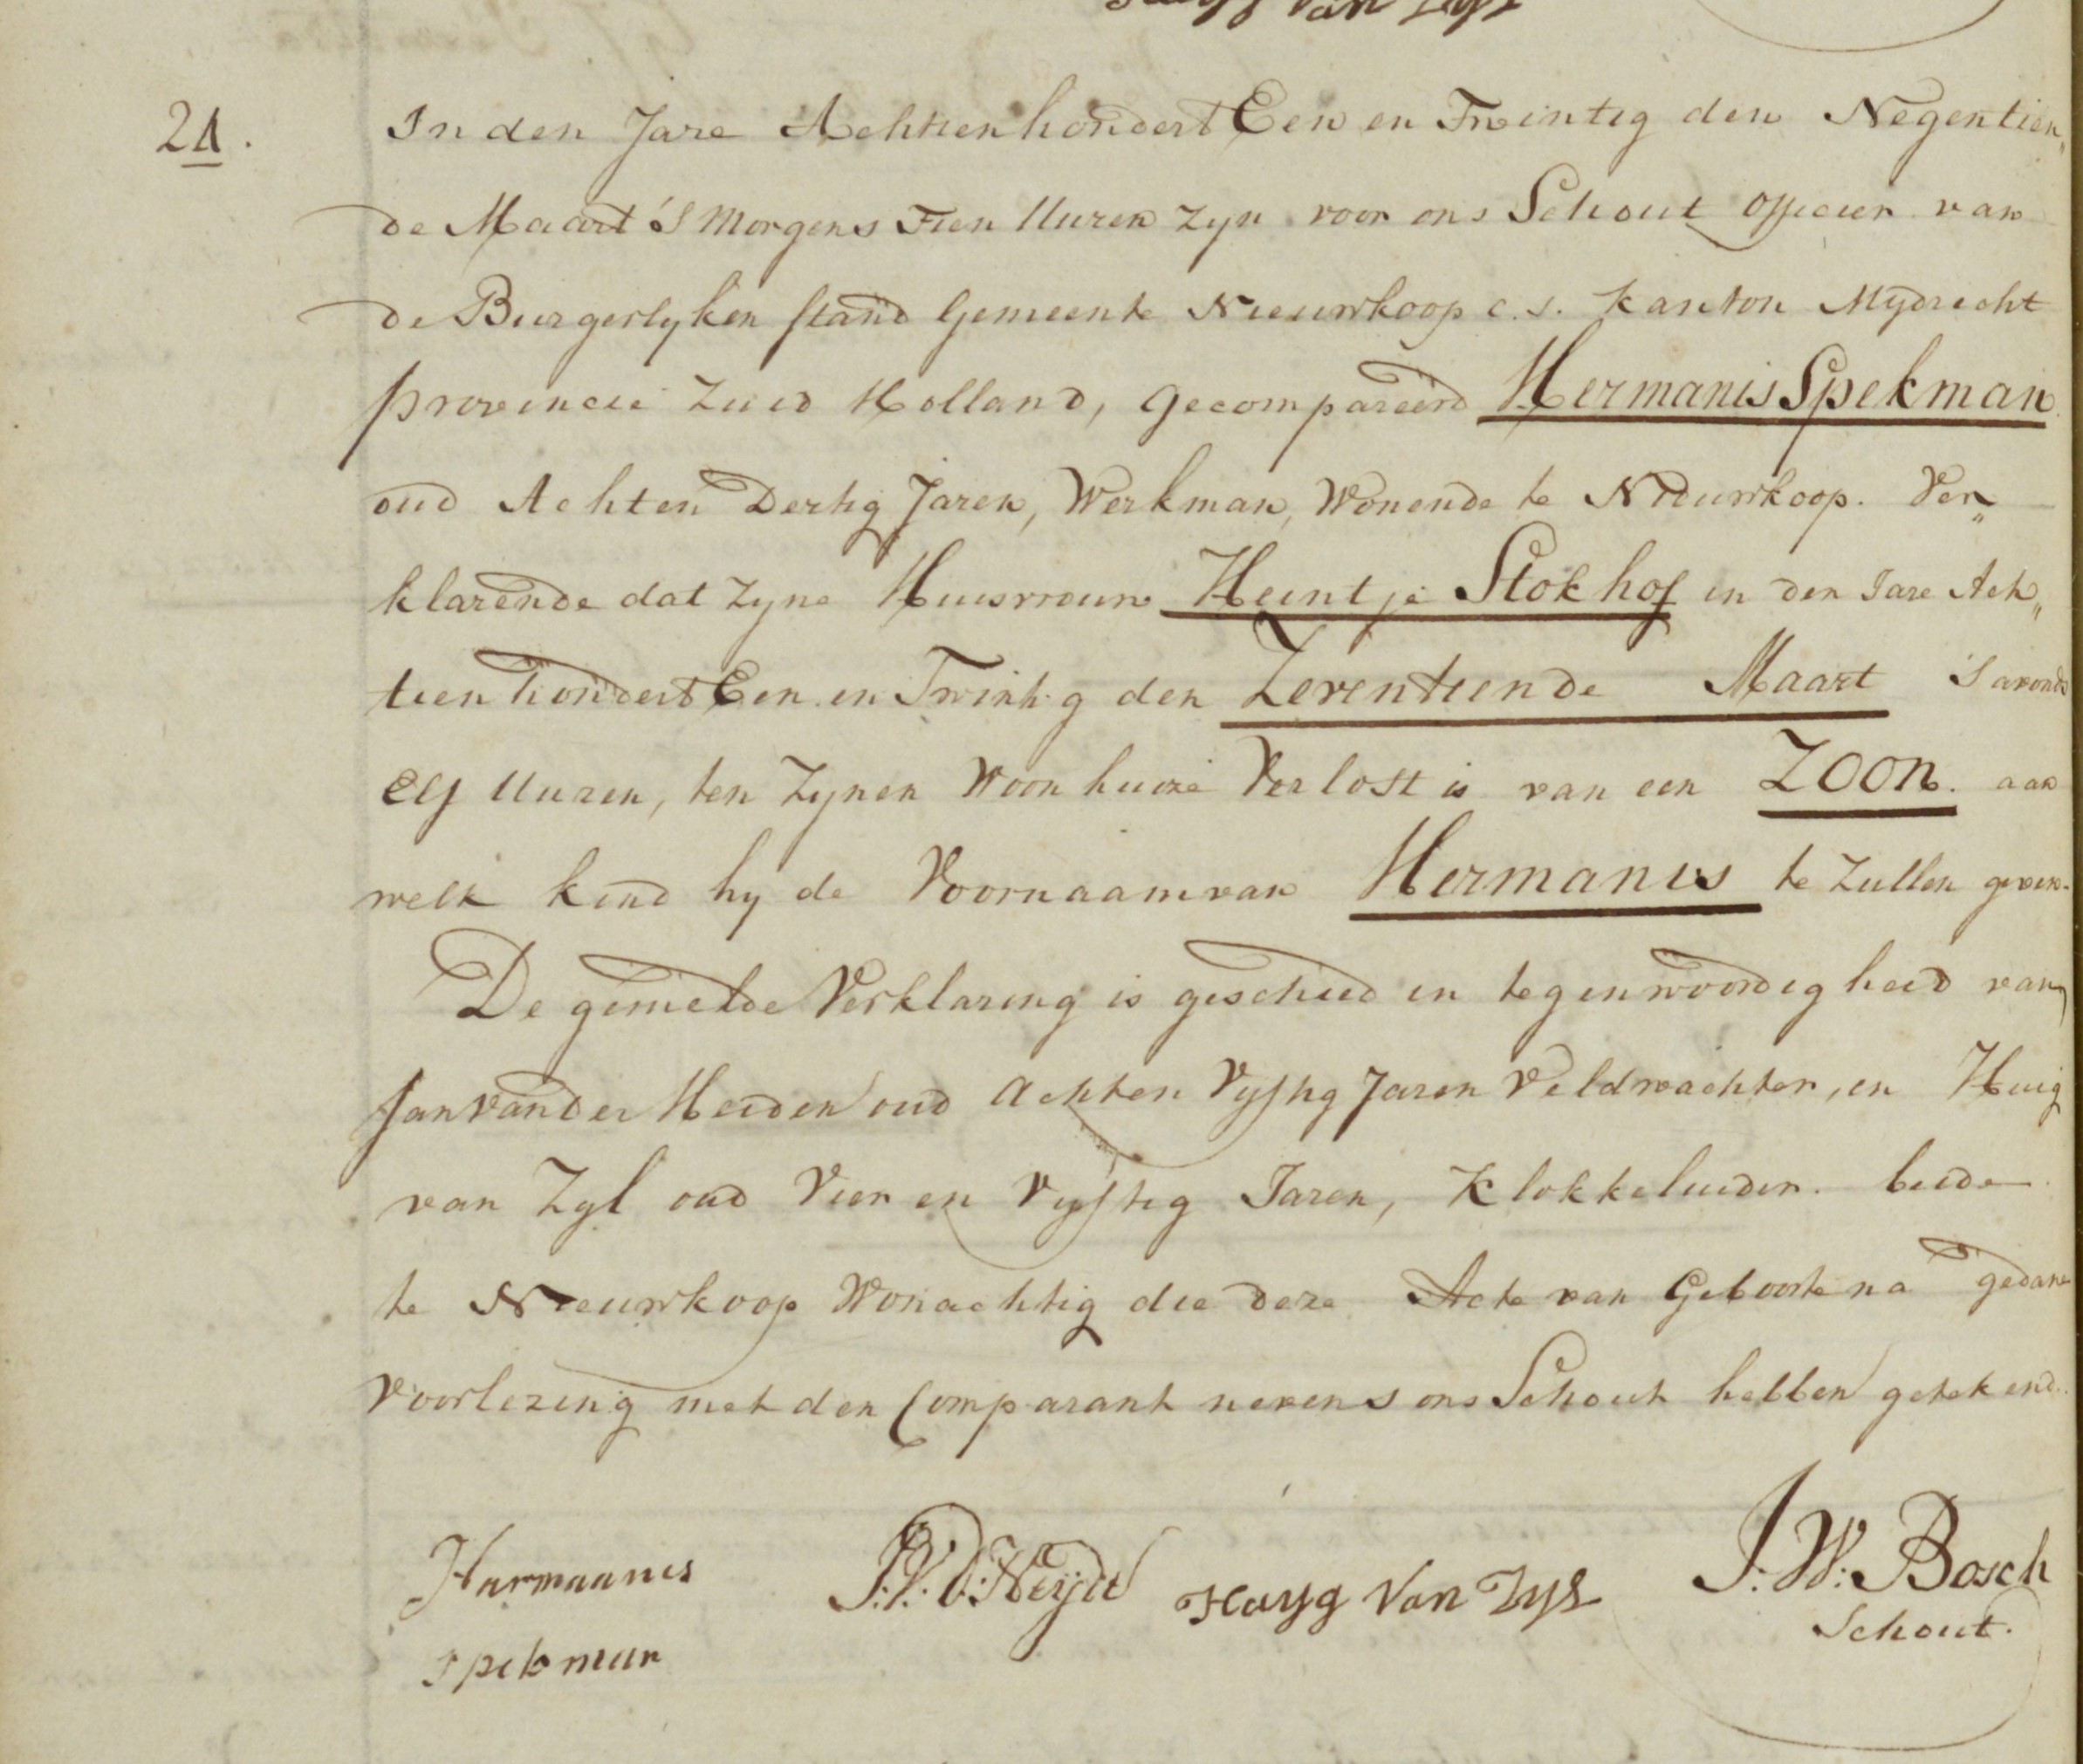 21.
In den Jare Achttienhondert Een en Twintig den Negentien„
de Maart 's Morgens Tien Uuren zyn voor ons Schout officier van
de Burgerlyken stand Gemeente Nieuwkoop c.s. Kanton Mydrecht
provincie Zuid Holland, gecompareerd Hermanis Spekman
oud Achten Dertig Jaren, Werkman, Wonende te Nieuwkoop. Ver„
klarende dat zyne Huisvrouw Heintje Stokhof in den Jare Ach„
tien hondert Een en Twintig den Zeventiende Maart 's avonds
elf Uuren, ten Zynen Woonhuize Verlost is van een ZOON. aan
welk kind hy de Voornaam van Hermanis te Zullen geven.
De gemelde Verklaring is geschied in tegenwoordigheid van
Jan van der Heiden oud Achten Vyftig Jaren Veldwachter, en Huig
van Zyl oud Vier en Vyftig Jaren, Klokkeluider. beide
te Nieuwkoop Wonachtig die deze Acte van Geboorte na gedane
Voorlezing met den Comparant nevens ons Schout hebben getekend.
Harmaanis J.V.D.Heijde Huyg Van Zyl J.W. Bosch
spekman Schout.